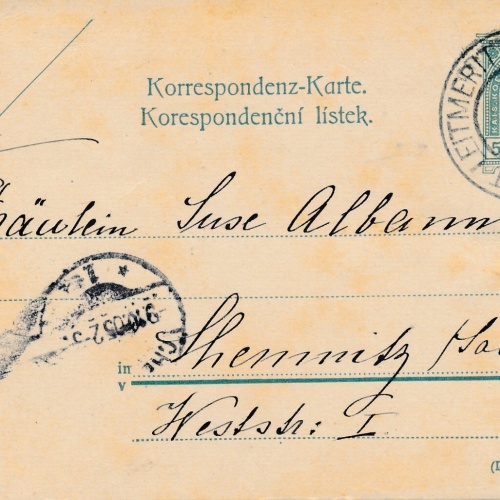 Korrespondenz-Karte.
Korespondenční lístek.
LEITMERIT
5
Fräulein Suse Albann
9.10.05.2-3.
Che
in Chemnitz (Sa
v
Weststr: I
(D